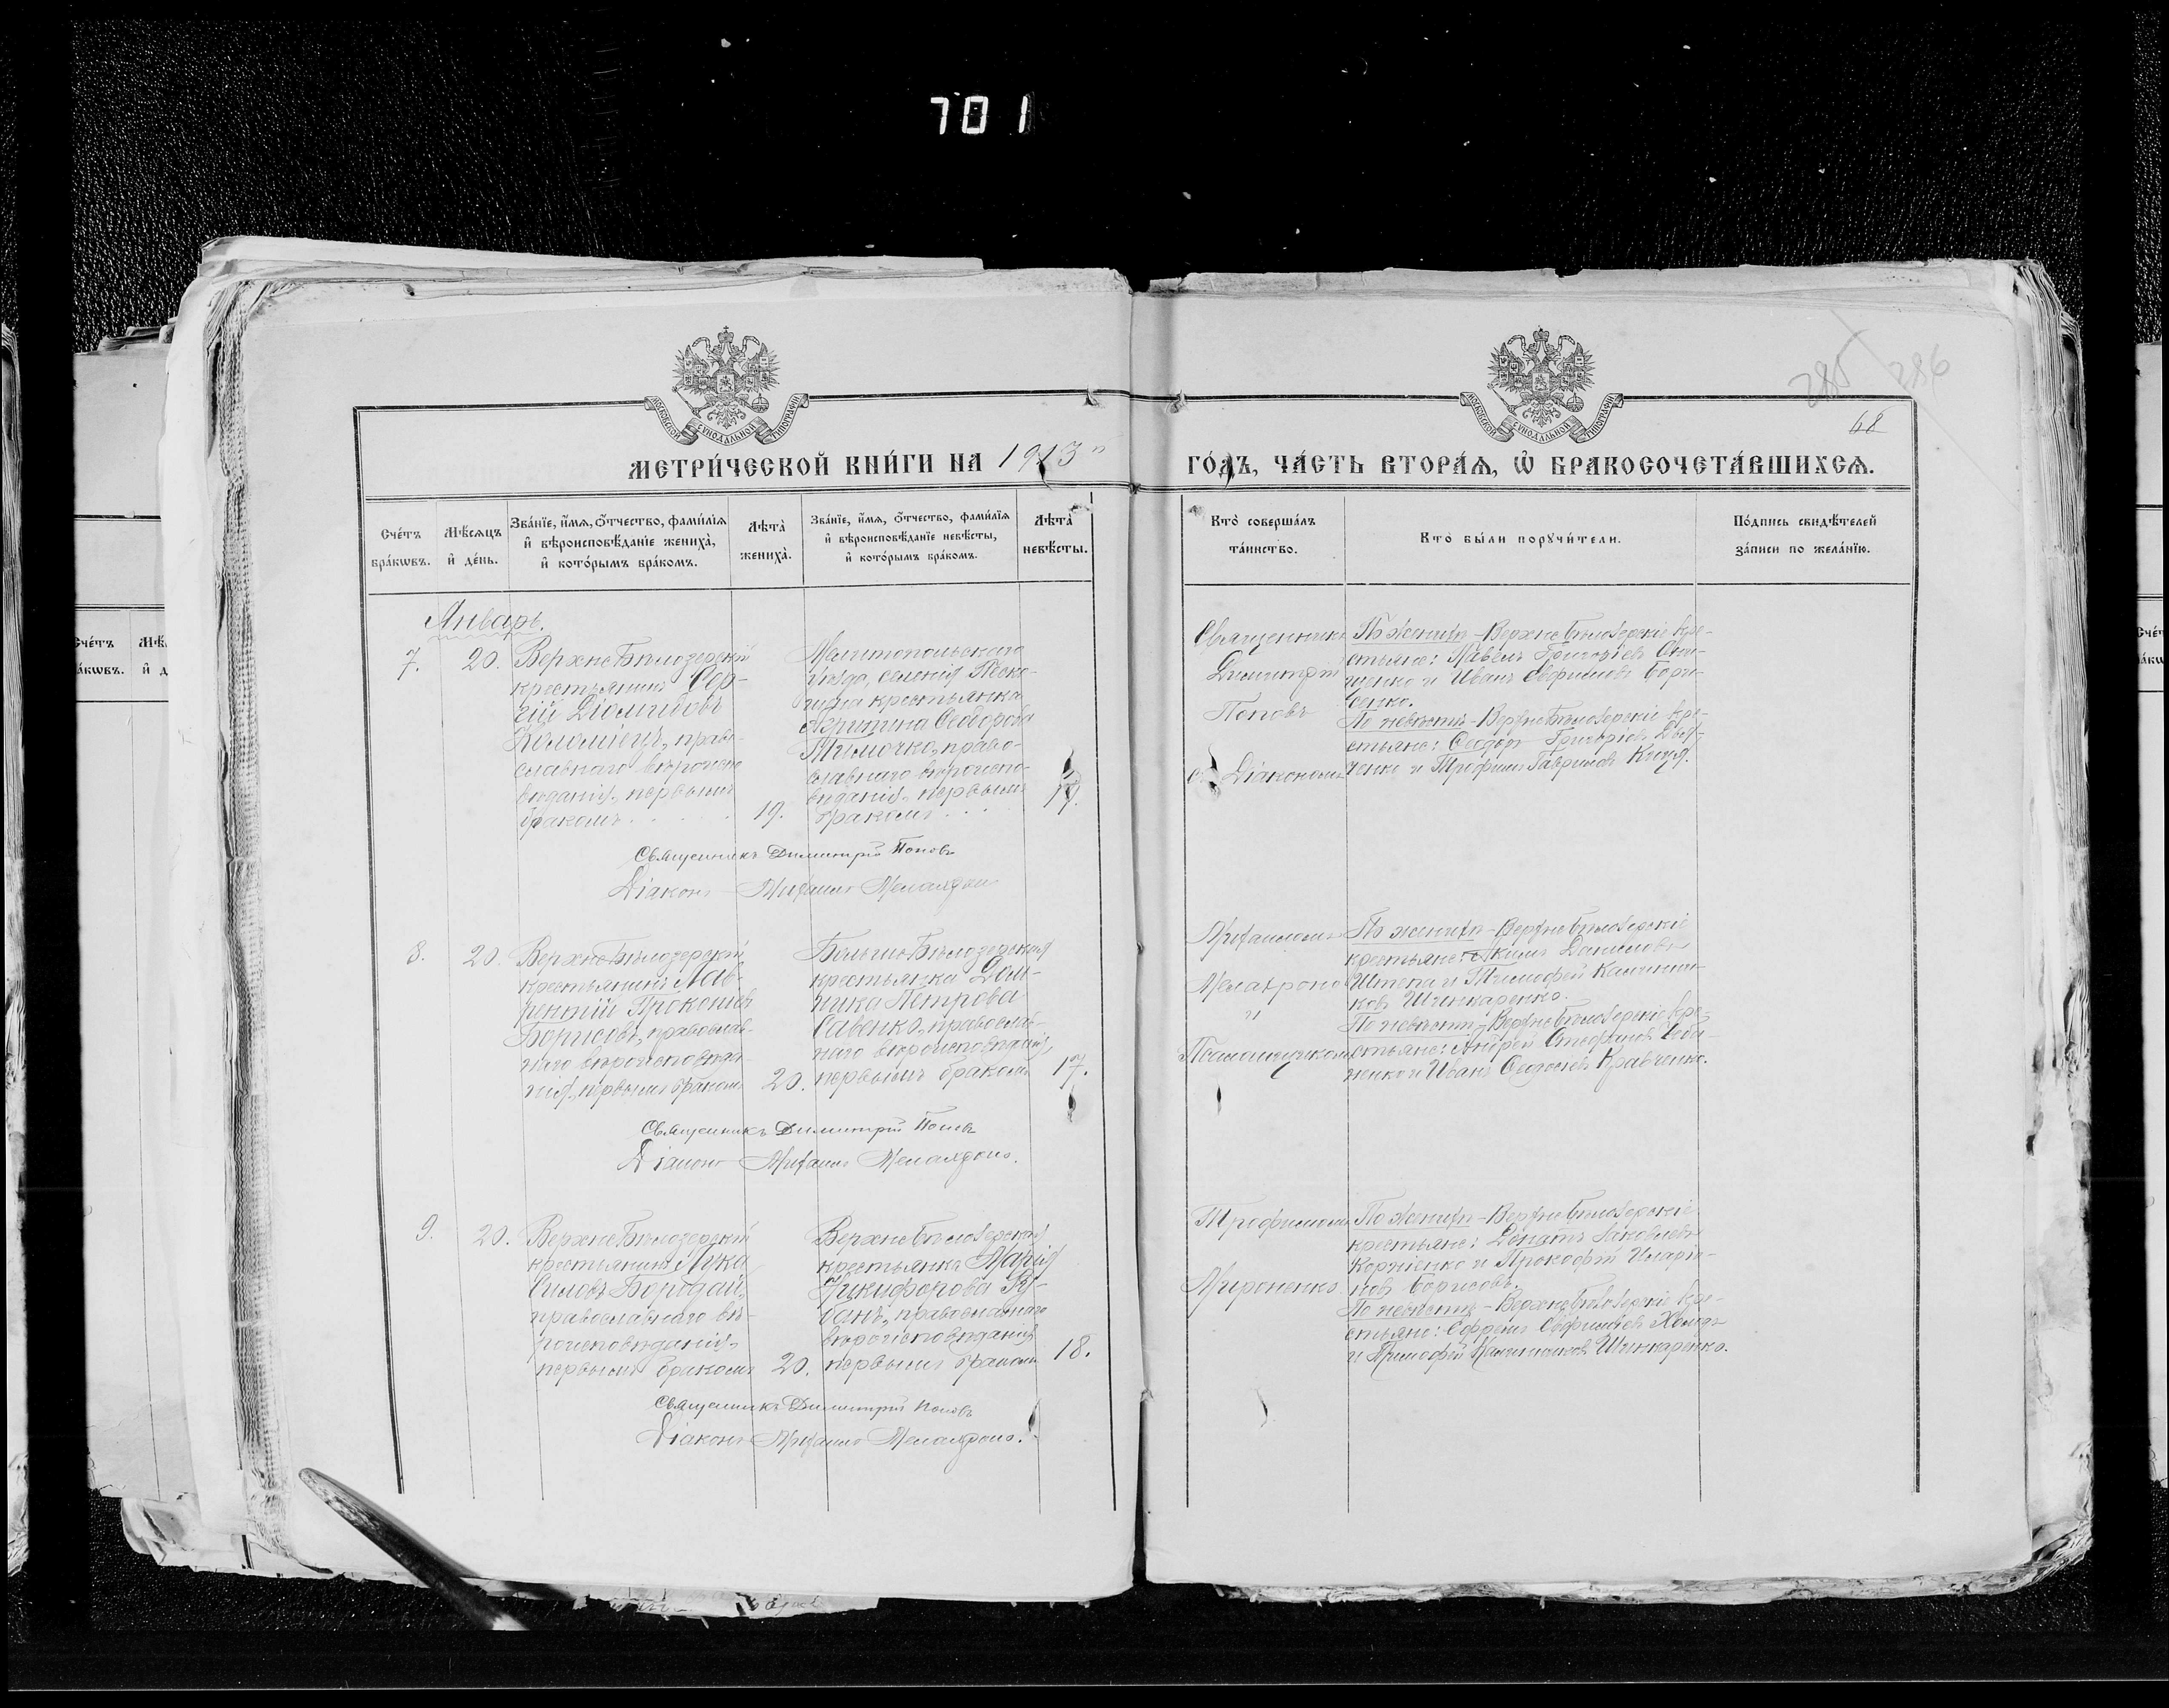 701
285 286
68
МОСКОВСКОЙ СѴНОДАЛЬНОЙ ТИПОГРАФІИ
МОСКОВСКОЙ СѴНОДАЛЬНОЙ ТИПОГРАФІИ
МЕТРИ́ЧЕСКОЙ КНИ́ГИ НА 1913й ГО́ДЪ, ЧА́СТЬ ВТОРА́Ѧ, Ѡ҆ БРАКОСОЧЕТА́ВШИХСѦ.
Сче́тъ бра́кѡвъ.
Мѣ́сѧцъ и҆ де́нь.
Зва́нїе, и҆́мѧ, ѻ҆́тчество, фами́лїѧ и҆ вѣроисповѣ́данїе жениха̀, и҆ кото́рымъ бра́комъ.
Лѣта̀ жениха̀.
Зва́нїе, и҆́мѧ, ѻ҆́тчество, фами́лїѧ и҆ вѣроисповѣ́данїе невѣ́сты, и҆ кото́рымъ бра́комъ.
Лѣта̀ невѣ́сты.
Кто̀ соверша́лъ та́инство.
Кто̀ бы́ли порꙋчи́тели.
По́дпись свидѣ́телей за́писи по жела́нїю.
Январь.
7.
20.
Верхне Бѣлозерскій
крестьянинъ Сер-
гій Діомидовъ
Коломіецъ, право-
славнаго вѣроиспо
вѣданія, первымъ
бракомъ
19.
Мелитопольскаго
уѣзда, селенія
крестьянка
Агрипина Ѳеодорова
Тимочко, право-
славнаго вѣроиспо-
вѣданія, первымъ
бракомъ
Священникъ
Димитрій
Поповъ
съ Діакономъ
По женихѣ - Верхне Бѣлозерскіе кре-
стьяне: Павелъ Григорьевъ
и Иванъ Евфиміевъ Бори-
сенко.
По невѣстѣ - Верхне Бѣлозерскіе кре-
стьяне: Ѳеодоръ Григорьевъ
и Трофимъ Гавриловъ
Священникъ Димитрій Поповъ
Діаконъ Михаилъ
8.
20.
Верхне Бѣлозерскій
крестьянинъ Лав-
рентій Прокопіевъ
Борисовъ, православ-
наго вѣроисповѣда-
нія, первымъ бракомъ
20.
Больше Бѣлозерская
крестьянка Дом-
ника Петрова
Савенко, православ-
наго вѣроисповѣданія,
первымъ бракомъ
17.
Михаиломъ
и
Псаломщикомъ
По женихѣ - Верхне Бѣлозерскіе
крестьяне: Акимъ Даниловъ
Штепа и Тимофей Калинни-
ковъ Шинкаренко.
По невѣстѣ - Верхне Бѣлозерскіе кре-
стьяне: Андрей Стефановъ
и Иванъ Кравченко.
Священникъ Димитрій Поповъ
Діаконъ Михаилъ
9.
20.
Верхне Бѣлозерскій
крестьянинъ Лука
Силовъ Бородай,
православнаго вѣ-
роисповѣданія,
первымъ бракомъ
20.
Верхне Бѣлозерская
крестьянка Марія
Никифорова Ру-
банъ, православнаго
вѣроисповѣданія
первымъ бракомъ
18.
Трофимомъ
Мироненко
По женихѣ - Верхне Бѣлозерскіе
крестьяне: Яковлевъ
Корніенко и Прокофій Иларіо-
новъ Борисовъ.
По невѣстѣ - Верхне Бѣлозерскіе кре-
стьяне: Ефремъ Евфиміевъ
и Тимофей Калинниковъ Шинкаренко.
Священникъ Димитрій Поповъ
Діаконъ Михаилъ